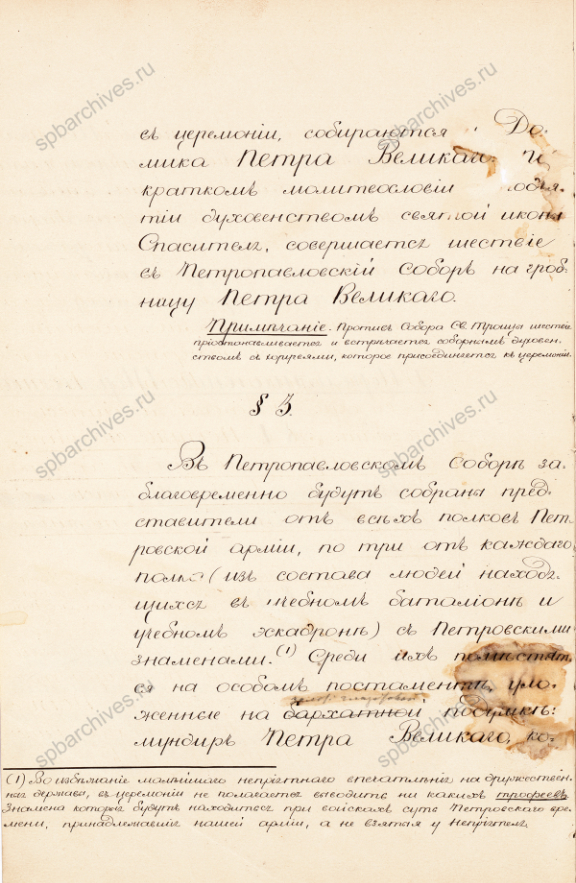 съ церемоніи, собираются До-
мика Петра Великаго. И
краткомъ молитвословіи
тіи духовенствомъ святой иконы
Спасителя, совершается шествіе
въ Петропавловскій Соборъ на гроб-
ницу Петра Великаго.
Примѣчаніе. Противъ Собора Св. Троицы шествіе
пріостанавливается и встрѣчается соборнымъ духовен-
ствомъ съ хоругвями, которое присоединяется къ церемоніи.
§ 3.
Въ Петропавловскомъ Соборѣ за-
благовременно будутъ собраны пред-
ставители отъ всѣхъ полковъ Пет-
ровской арміи, по три отъ каждаго
полка (изъ состава людей находя-
щихся въ учебномъ баталіонѣ и
учебномъ эскадронѣ) съ Петровскими
знаменами.(1) Среди ихъ помѣстят-
ся на особомъ постаментѣ, уло-
женные на бархатной подушкѣ:
мундиръ Петра Великаго, ко-
(1) Во избѣжаніе малѣйшаго непріятнаго впечатлѣнія на дружествен-
ныя державы, въ церемоніи не полагается выводить ни какихъ трофеевъ
Знамена которыя будутъ находиться при войскахъ суть Петровскаго вре-
мени, принадлежавшія нашей арміи, а не взятыя у непріятеля.
spbarchives.ru
spbarchives.ru
spbarchives.ru
spbarchives.ru
spbarchives.ru
spbarchives.ru